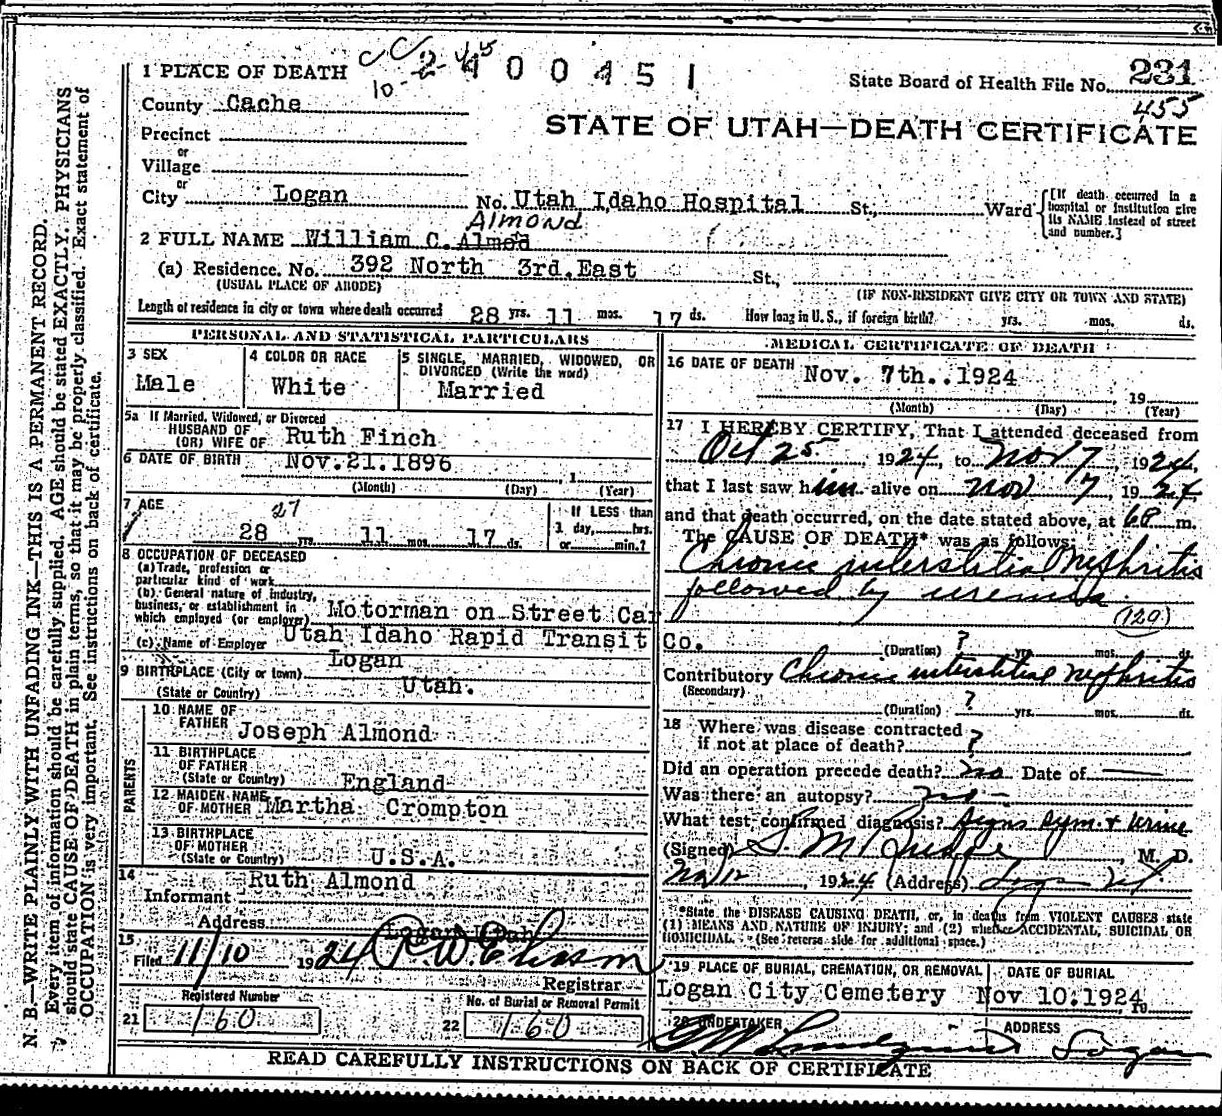 CC 2 4 00451
10-
1 PLACE OF DEATH
State Board of Health File No. 231
455
County Cache
STATE OF UTAH—DEATH CERTIFICATE
Precinct
or
Village
or
City Logan No. Utah Idaho Hospital St., Ward [If death occurred in a hospital or institution give its NAME instead of street and number.]
Almond
2 FULL NAME William C. Almod
(a) Residence. No. 392 North 3rd. East St.,
(USUAL PLACE OF ABODE) (IF NON-RESIDENT GIVE CITY OR TOWN AND STATE)
Length of residence in city or town where death occurred 28 yrs. 11 mos. 17 ds. How long in U.S., if foreign birth? yrs. mos. ds.
PERSONAL AND STATISTICAL PARTICULARS
3 SEX
Male
4 COLOR OR RACE
White
5 SINGLE, MARRIED, WIDOWED, OR
DIVORCED (Write the word)
Married
5a If Married, Widowed, or Divorced
HUSBAND OF
(OR) WIFE OF Ruth Finch
6 DATE OF BIRTH Nov. 21. 1896
(Month) (Day) (Year)
7 AGE 27
28 yrs. 11 mos. 17 ds.
If LESS than
1 day, hrs.
or min.?
8 OCCUPATION OF DECEASED
(a) Trade, profession or
particular kind of work
(b) General nature of industry,
business, or establishment in
which employed (or employer) Motorman on Street Car
(c) Name of Employer Utah Idaho Rapid Transit Co.
9 BIRTHPLACE (City or town) Logan
(State or Country) Utah.
PARENTS
10 NAME OF
FATHER Joseph Almond
11 BIRTHPLACE
OF FATHER
(State or Country) England
12 MAIDEN NAME
OF MOTHER Martha Crompton
13 BIRTHPLACE
OF MOTHER
(State or Country) U.S.A.
14
Informant Ruth Almond
Address Logan Utah
15
Filed 11/10 1924 R.W. Eliason
Registrar
Registered Number
21 160
No. of Burial or Removal Permit
22 160
MEDICAL CERTIFICATE OF DEATH
16 DATE OF DEATH Nov. 7th..1924
, 19
(Month) (Day) (Year)
17 I HEREBY CERTIFY, That I attended deceased from
Oct 25, 1924, to Nov 7, 1924,
that I last saw him alive on Nov 7, 1924
and that death occurred, on the date stated above, at m.
The CAUSE OF DEATH* was as follows:
Chronic interstitial Nephritis
followed by uremia
(129)
(Duration) ? yrs. mos. ds.
Contributory Chronic interstitial nephritis
(Secondary)
(Duration) ? yrs. mos. ds.
18 Where was disease contracted
if not at place of death? ?
Did an operation precede death? no Date of —
Was there an autopsy? no -
What test confirmed diagnosis? Signs Sym. + Urine
(Signed) , M. D.
Nov 12, 1924 (Address) Logan Ut
*State the DISEASE CAUSING DEATH, or, in deaths from VIOLENT CAUSES state
(1) MEANS AND NATURE OF INJURY; and (2) whether ACCIDENTAL, SUICIDAL OR
HOMICIDAL. (See reverse side for additional space.)
19 PLACE OF BURIAL, CREMATION, OR REMOVAL
Logan City Cemetery
DATE OF BURIAL
Nov 10.1924 19
20 UNDERTAKER
ADDRESS
Logan
READ CAREFULLY INSTRUCTIONS ON BACK OF CERTIFICATE
N. B.—WRITE PLAINLY WITH UNFADING INK—THIS IS A PERMANENT RECORD.
Every item of information should be carefully supplied. AGE should be stated EXACTLY. PHYSICIANS
should state CAUSE OF DEATH in plain terms, so that it may be properly classified. Exact statement of
OCCUPATION is very important. See instructions on back of certificate.